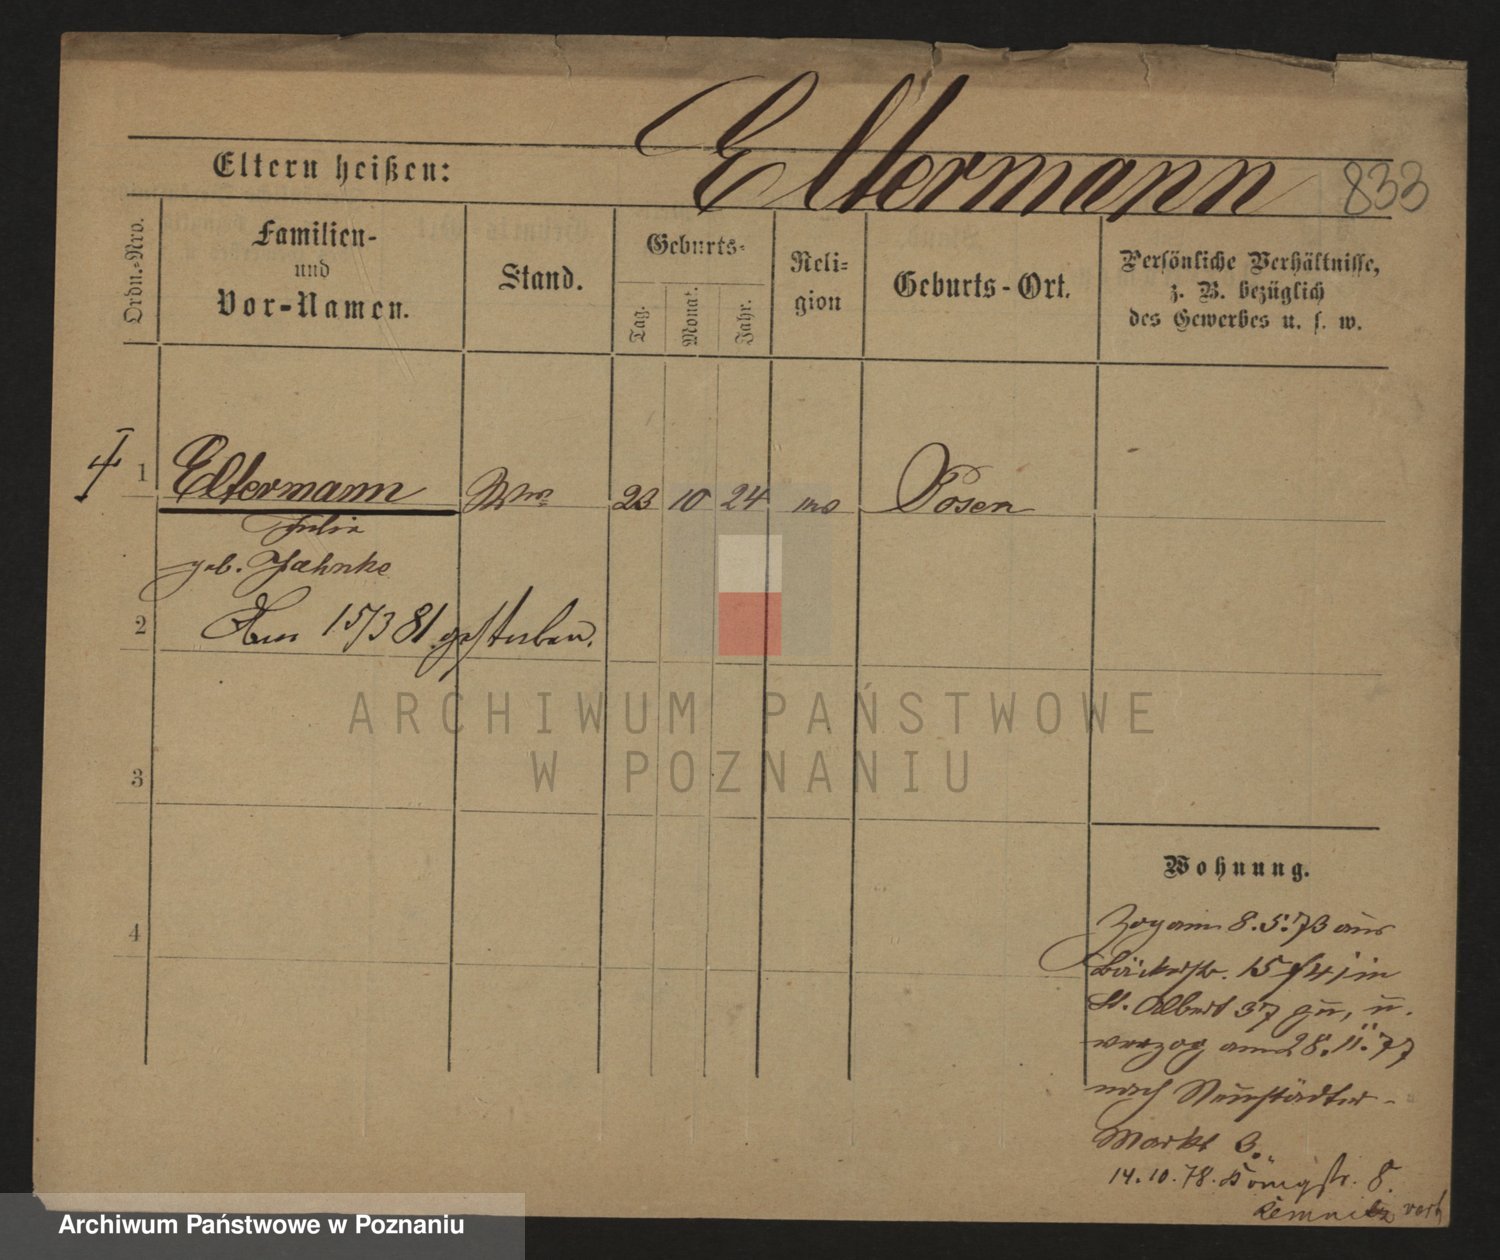 Eltermann 833
Eltern heißen:
Ordn.-Nro.
Familien-
und
Vor-Namen.
Stand.
Geburts-
Tag.
Monat.
Jahr.
Reli-
gion
Geburts-Ort.
Persönliche Verhältnisse,
z. B. bezüglich
des Gewerbes u. s. w.
1 Eltermann Wwe 23 10 24 Posen
Julie
geb. Jaehnke
2 Am 15/3 81 gestorben.
3
4
ARCHIWUM PAŃSTWOWE
W POZNANIU
Wohnung.
Zog am 8.5.73 aus
Bäckerstr. 15 in
St. Albert 37 zu, u.
verzog am 28.11.77
nach Neustädter-
Markt 3.
14.10.78. Königstr. 8.
Archiwum Państwowe w Poznaniu